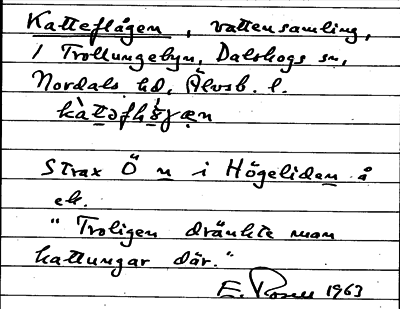 Katteflågen, vattensamling,
i Trollungebyn, Dalskogs sn,
Nordals hd, Älvsb. l.
Strax Ö n i Högeliden å
ek.
"Troligen dränkte man
kattungar där."
E. 1963